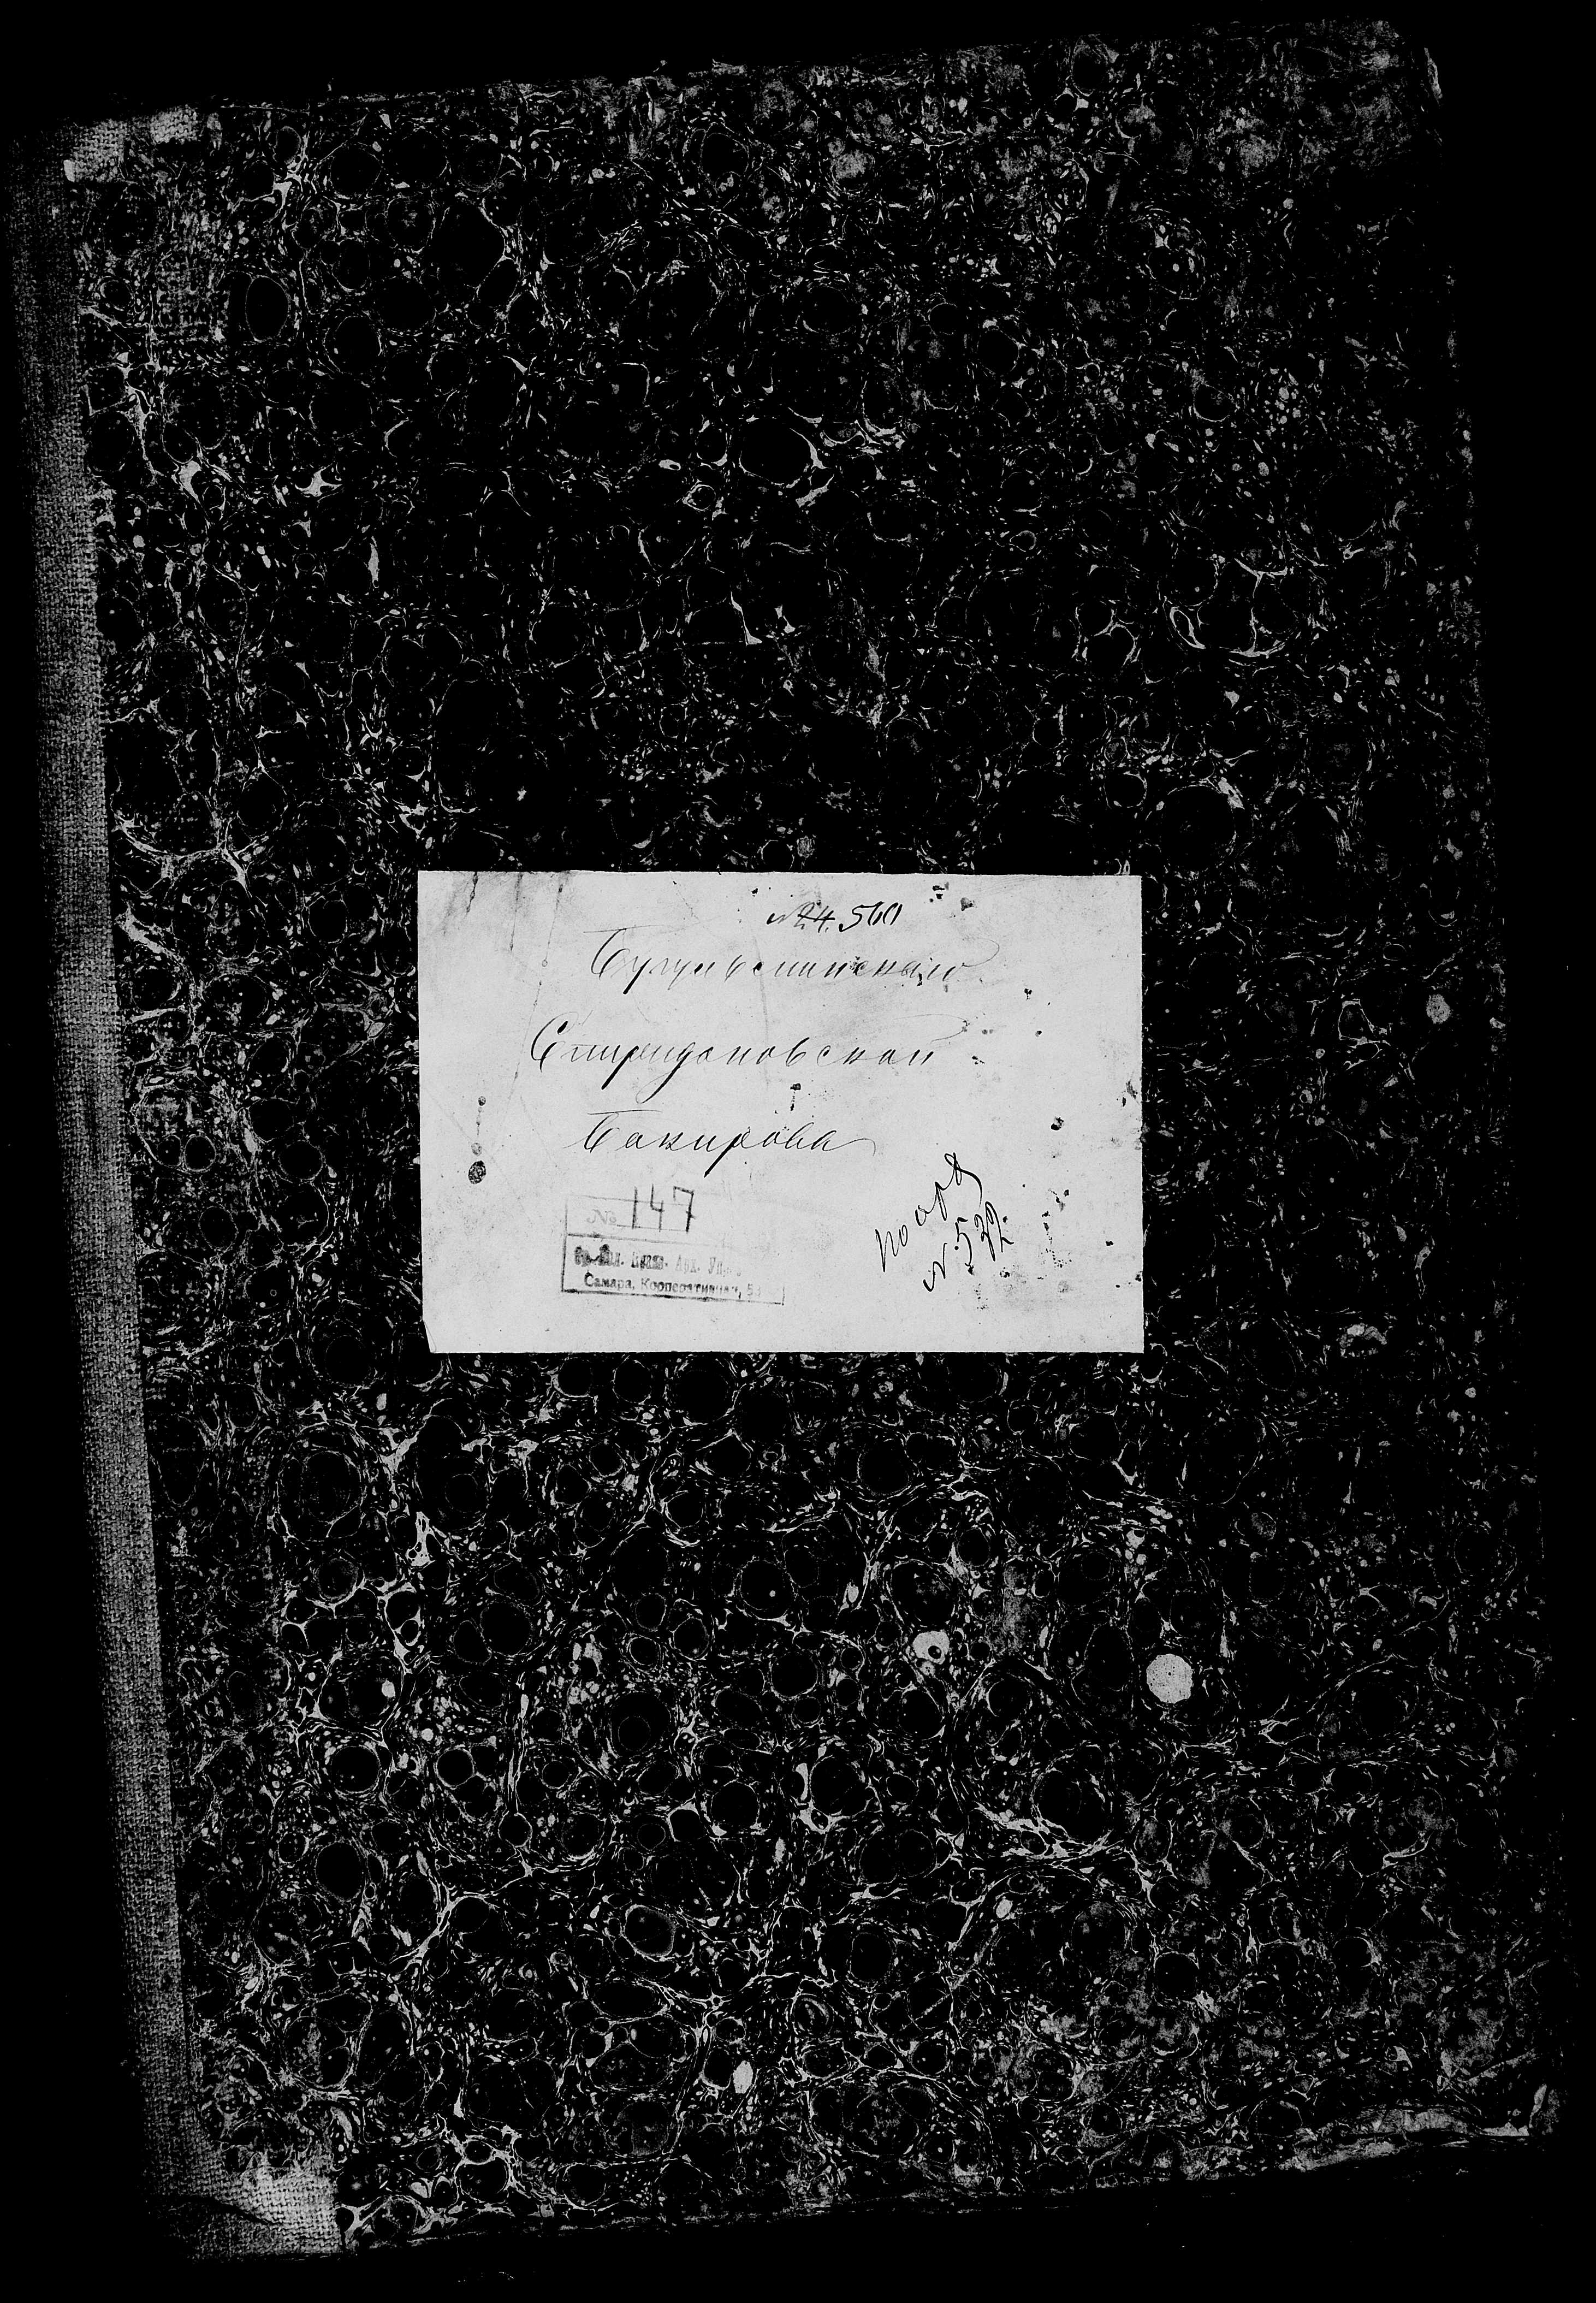 № 24.560
Бугульминскаго
Спиридоновской
Бакирова
№ 147
Арх.
Самара, Кооперативная,
по
№ 532